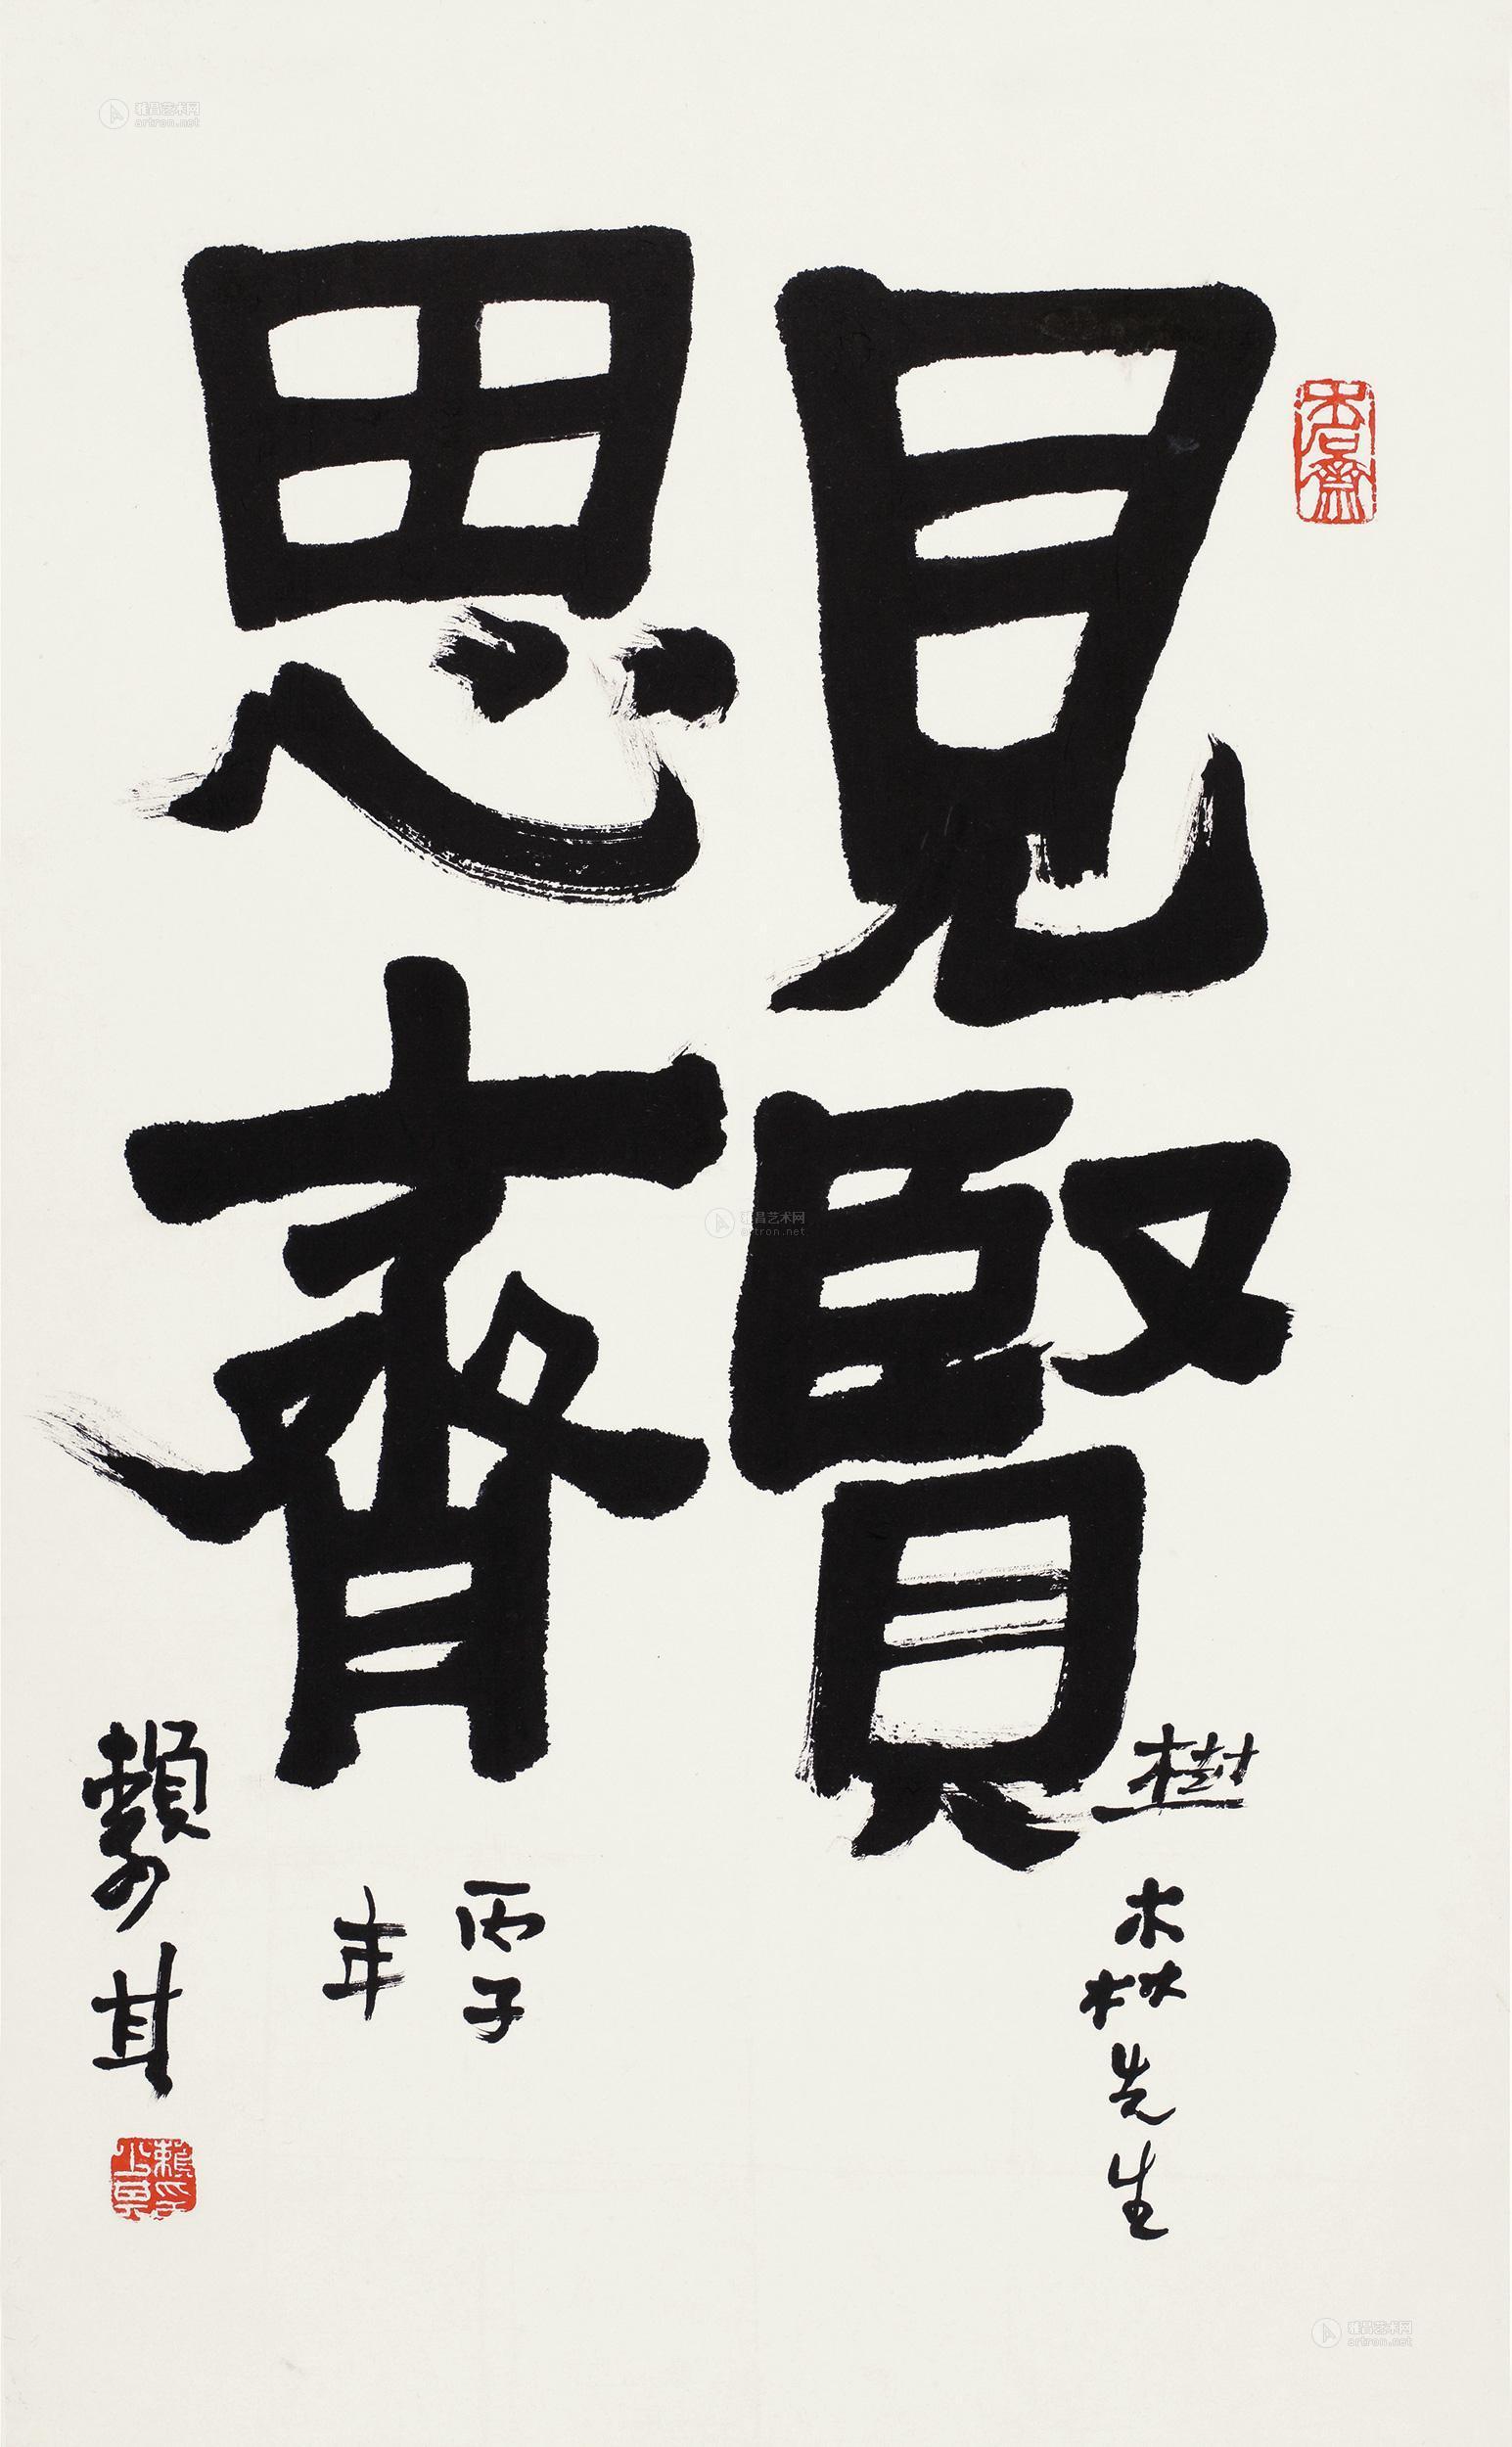 見賢
思齊
樹森先生
丙子
年
賴少其
木石齋
賴少其
雅昌艺术网
artron.net
雅昌艺术网
artron.net
雅昌艺术网
artron.net